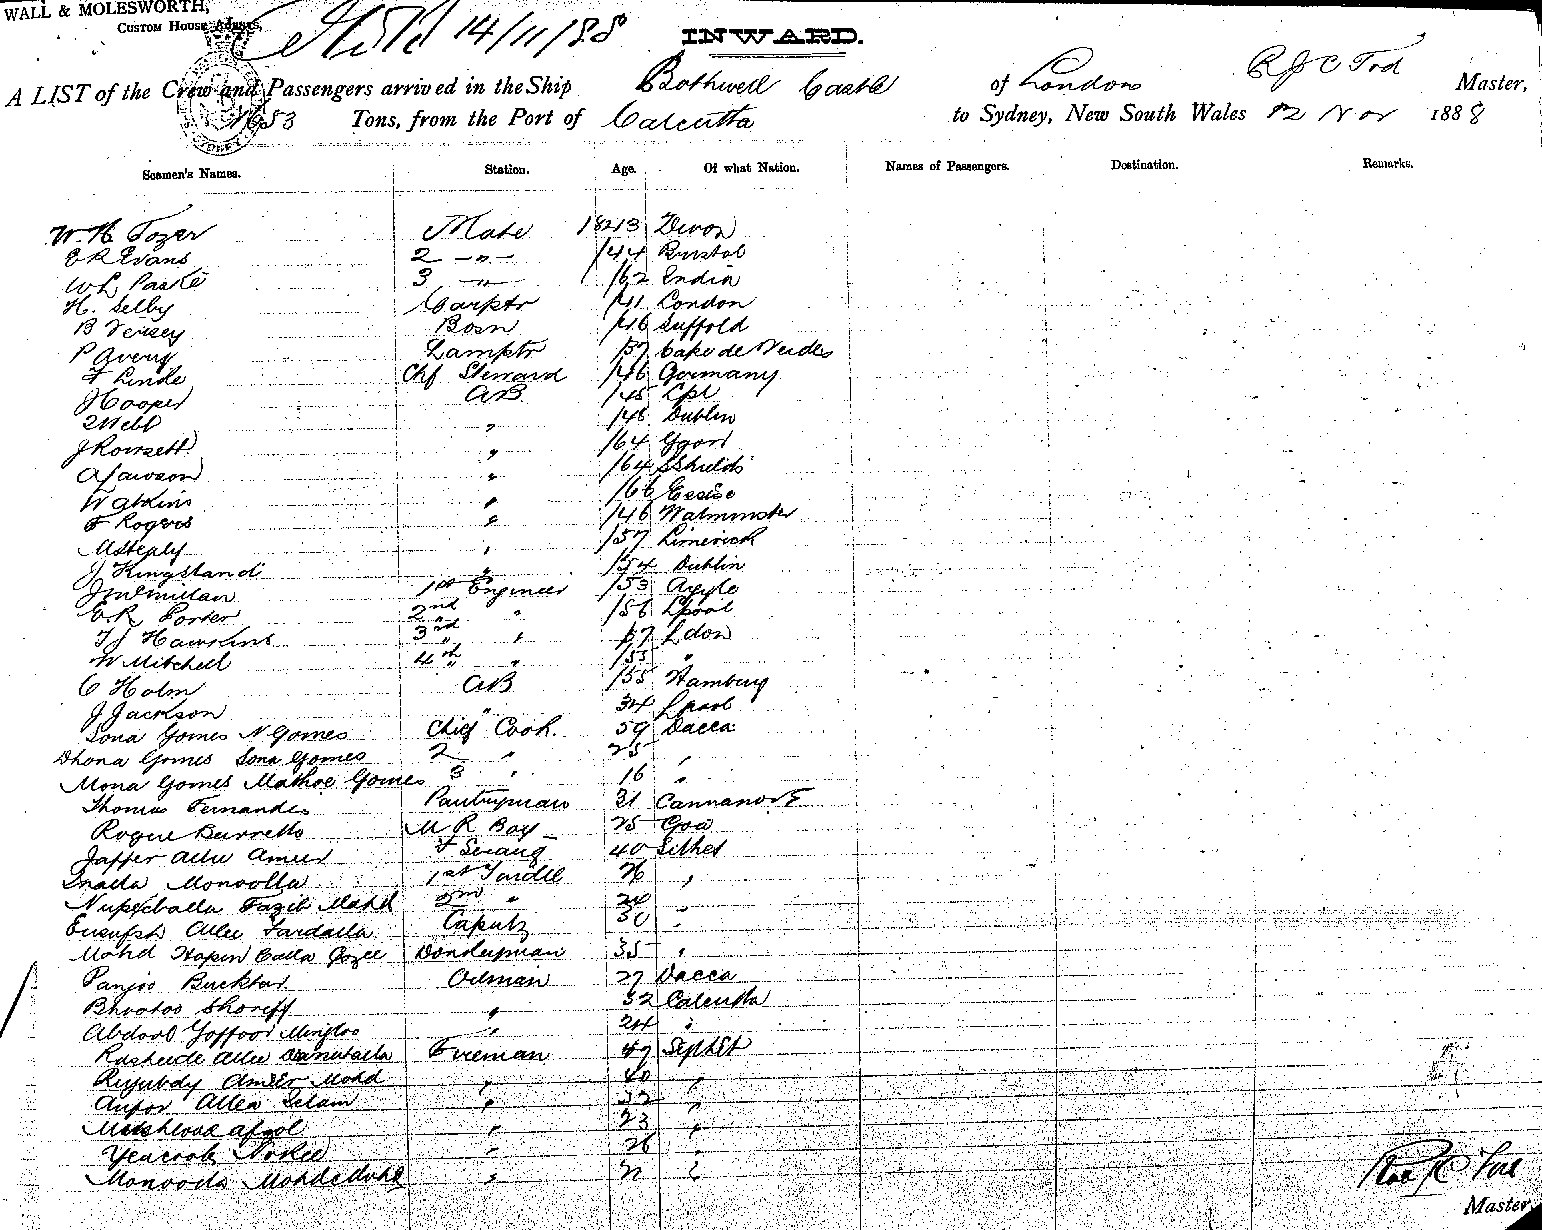 WALL & MOLESWORTH,
CUSTOM HOUSE AGENTS,
14/11/88
INWARD.
A LIST of the Crew and Passengers arrived in the Ship Bothwell Castle of London R J C Tod Master,
1653 Tons, from the Port of Calcutta to Sydney, New South Wales 12 Nov 1888
Seamen's Names. Station. Age. Of what Nation. Names of Passengers. Destination. Remarks.
W. H. Tozer Mate 1843 Devon
E R Evans 2 " /44 Bristol
W L Paske 3 " /62 India
H. Selby Carptr /41 London
B Versey Bosn /46 Suffold
P Avery Lamptr /37 Cape de Verdes
F Linde Chf Steward /46 Germany
J Cooper AB /45 Lpl
Webb " /48 Dublin
J Rowsell " /64
A Lawson " /64 S Shields
W Atkins " /66 Essex
F Rogers " /46 Warminster
M Healy " /57 Limerick
J Kingsland " /54 Dublin
J McMillan 1st Engineer /53 Argyle
E R Porter 2nd " /56 Lpool
T J Hawkins 3rd " /57 Ldon
W Mitchell 4th " /55 "
C Holm AB /55 Hamburg
J Jackson " 34 Lpool
Sona Gomes N Gomes Chief Cook. 59 Dacca
Dhona Gomes Sona Gomes 2 " 25 "
Mona Gomes Mathoe Gomes 3 " 16 "
Thomas Fernandes Pantryman 31 Cannanore
Roque Barretto M R Boy 25 Goa
Jaffer Allee Ameer F Serang 40 Silhet
Monoolla 1st Tindle 26 "
Fazil Mahd 2nd " 24 "
Allee 30 "
Mahd Donkeyman 35 "
Panjoo Bucktar Oilman 27 Dacca
Bhootoo Shoriff " 32 Calcutta
Abdool Goffoor " 24 "
Rasheede Allee Fireman 47
Ameer Mohd " 40 "
Allea Selam " 32 "
" 23 "
Yeacoob " 26 "
" 22 "
Master